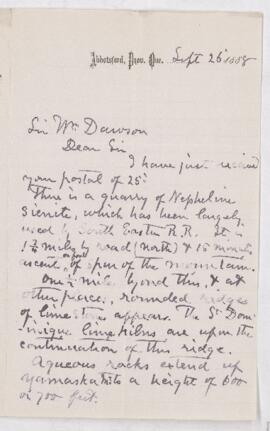 Abbotsford, Prov. Que. Sept 26 1888
Sir Wm Dawson
Dear Sir
I have just received
your postal of 25.
There is a quarry of Nepheline
Sienite, which has been largely
used by South Eastern R.R. It is
1½ miles by road (north) & 15 minutes
ascent, on foot of spur of the mountain.
One ½ mile byond this, & at
other places, rounded ridges
of limestones appears. The St Dom-
inique lime kilns are upon the
continuation of this ridge.
Aqueous rocks extend up
Yamaska to a height of 600
or 700 feet.